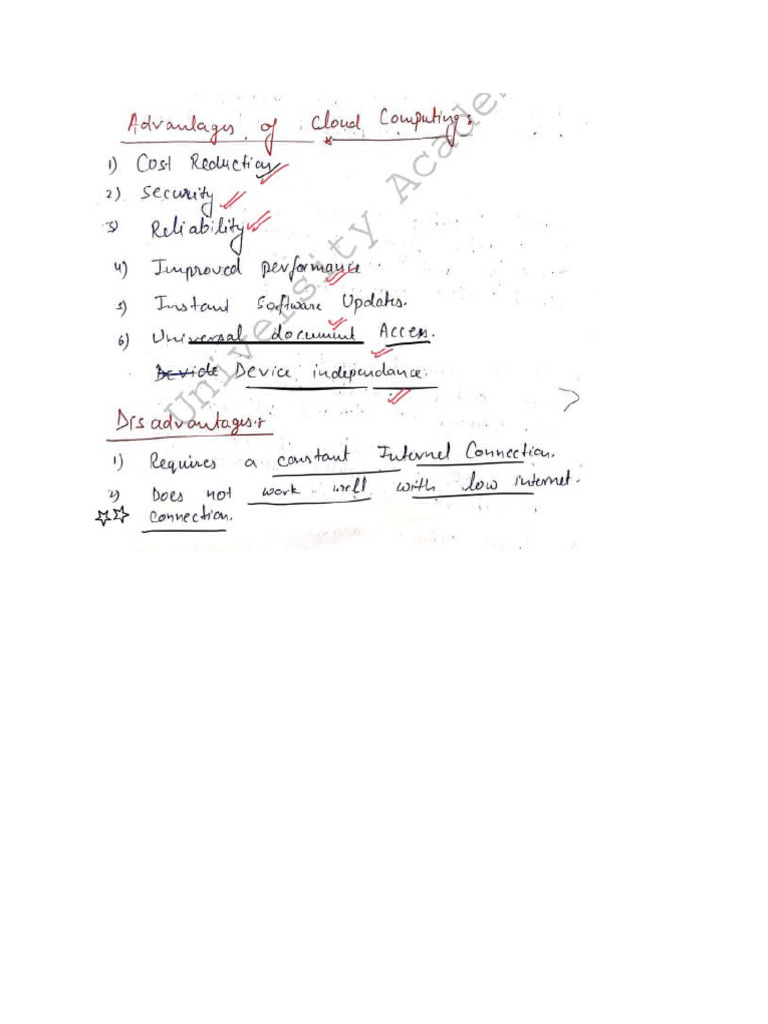 Advantages of Cloud Computing :
1) Cost Reduction
2) Security
3) Reliability
4) Improved performance
5) Instant Software Updates.
6) Universal document Access.
Device independance.
Disadvantages :
1) Requires a constant Internet Connection.
2) Does not work well with low internet.
connection.
University Acade